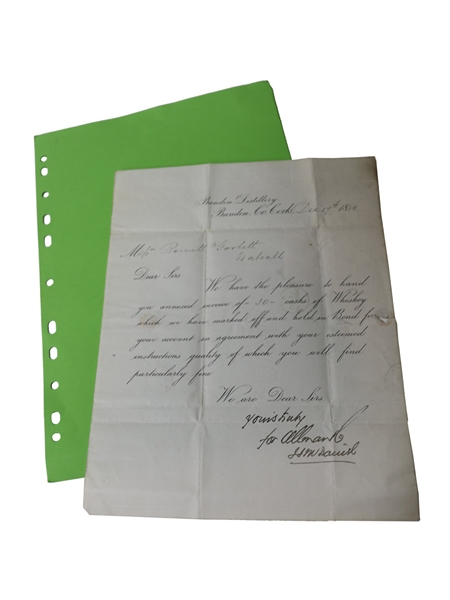 Bandon Distillery
Bandon, Co. Cork, Dec 17th 18
Messrs &
Dear Sirs
We have the pleasure to hand
you annexed invoice of 30 casks of Whiskey
which we have marked off and hold in Bond for
your account in agreement with your esteemed
instructions quality of which you will find
particularly fine
We are Dear Sirs
yours truly
for Allman &